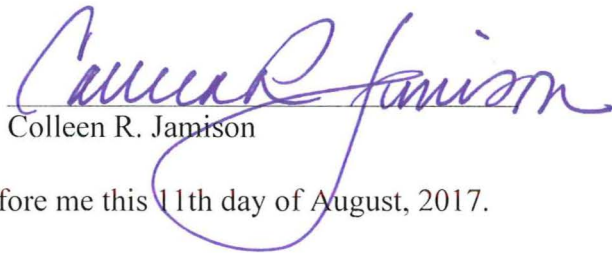 Colleen R. Jamison
Colleen R. Jamison
fore me this 11th day of August, 2017.